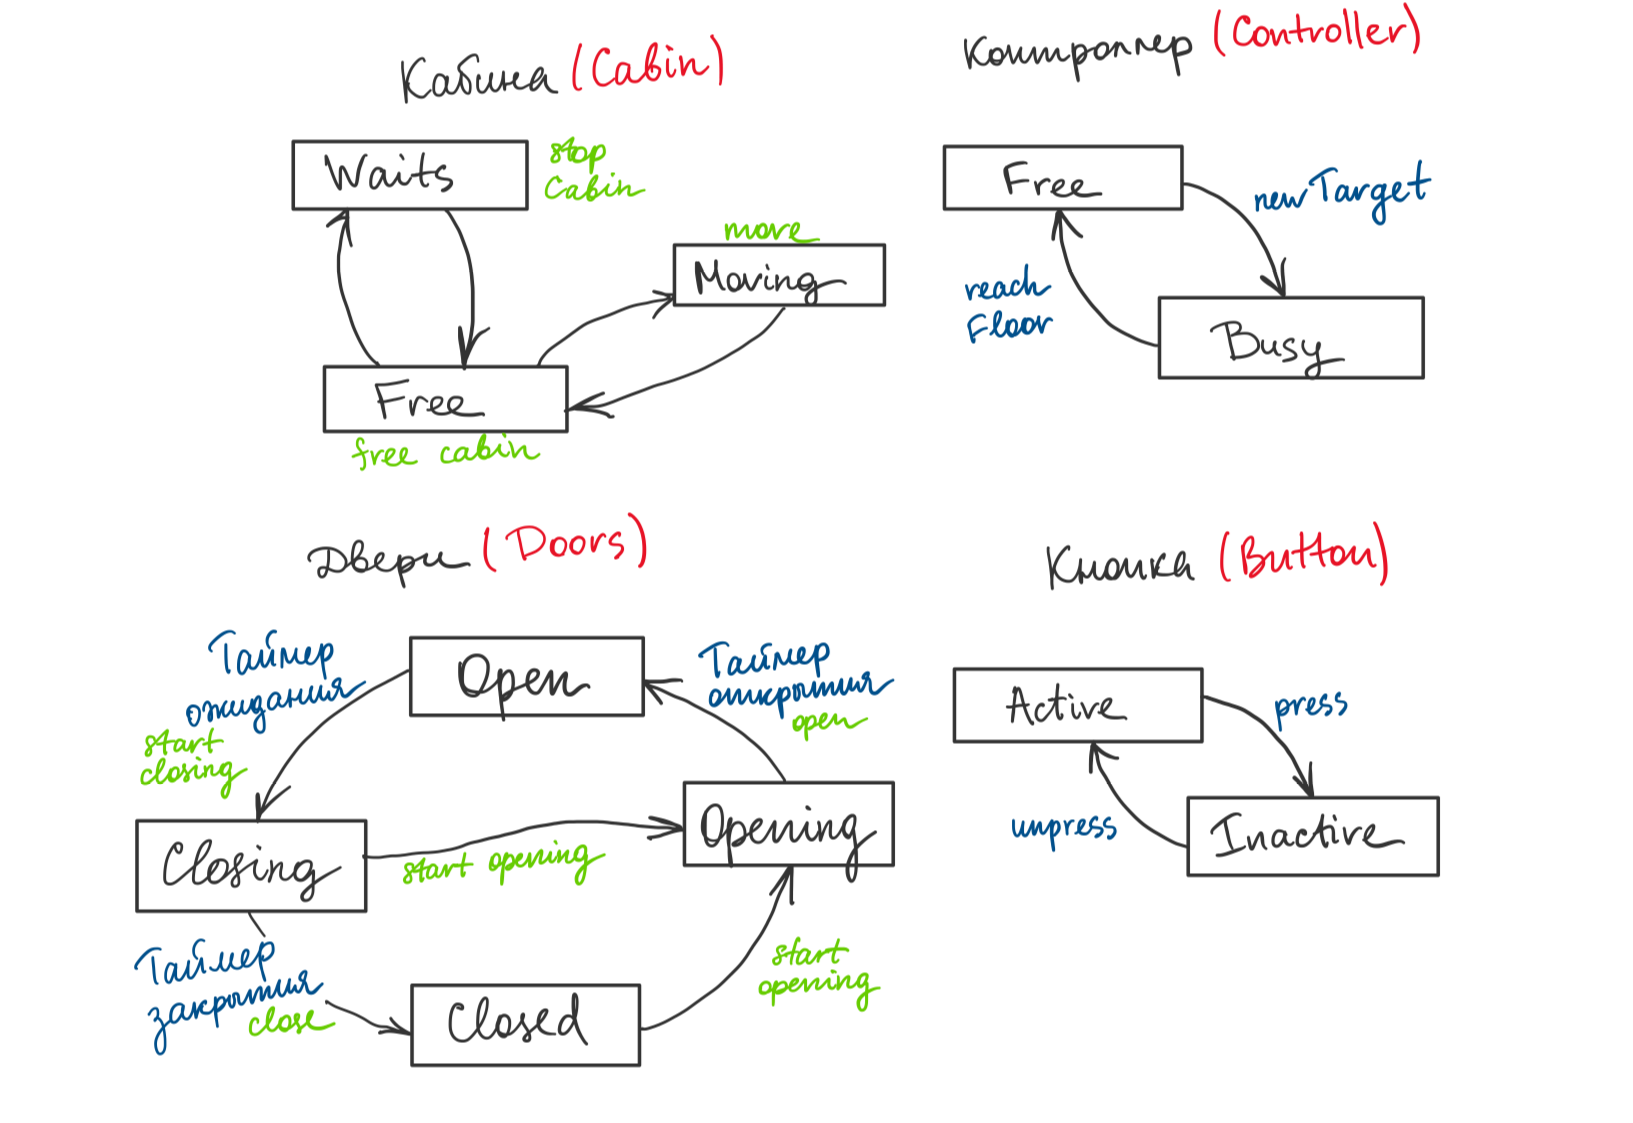 Кабина (Cabin)
Waits
stop
Cabin
move
Moving
Free
free cabin
Контроллер (Controller)
Free
newTarget
reach
Floor
Busy
Двери (Doors)
Таймер
ожидания
start
closing
Open
Таймер
открытия
open
Closing
start opening
Opening
Таймер
закрытия
close
Closed
start
opening
Кнопка (Button)
Active
press
unpress
Inactive